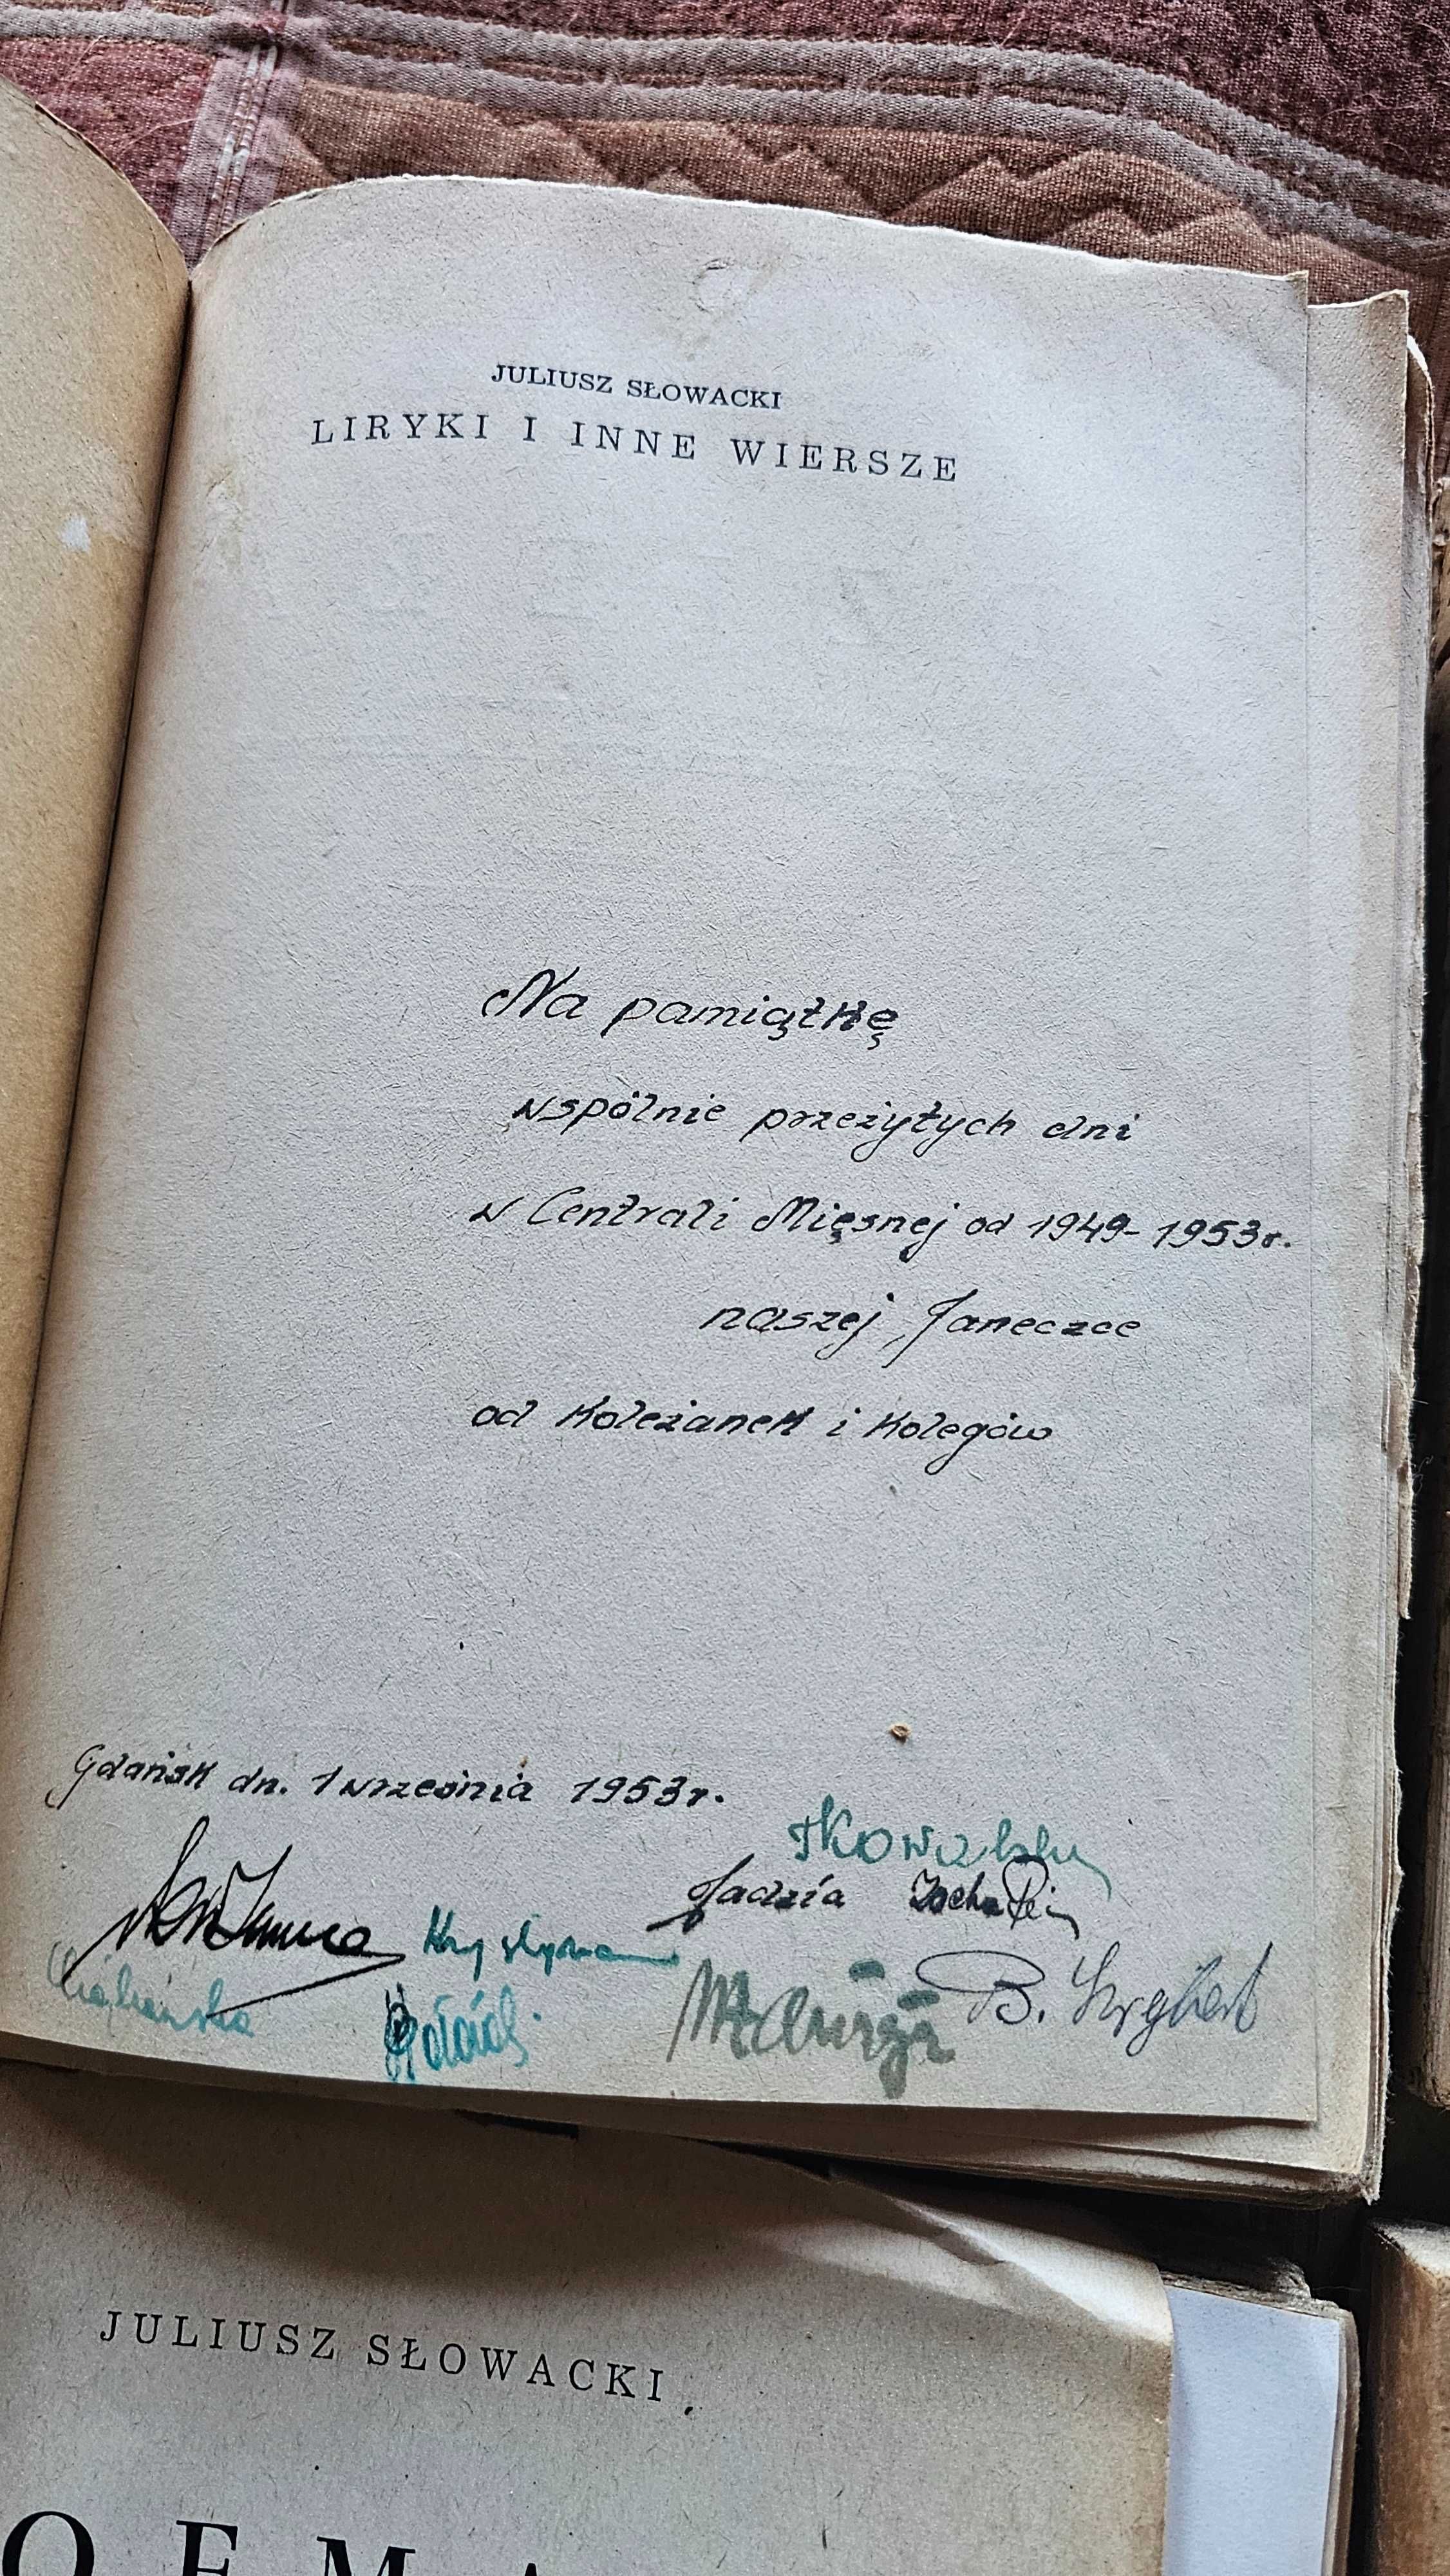 JULIUSZ SŁOWACKI
LIRYKI I INNE WIERSZE
Na pamiątkę
wspólnie przeżytych dni
w Centrali Mięsnej od 1949-1953r.
naszej Janeczce
od Koleżanek i Kolegów
Gdańsk dn. 1 września 1953r.
Jadzia
Krystyna
B.
JULIUSZ SŁOWACKI